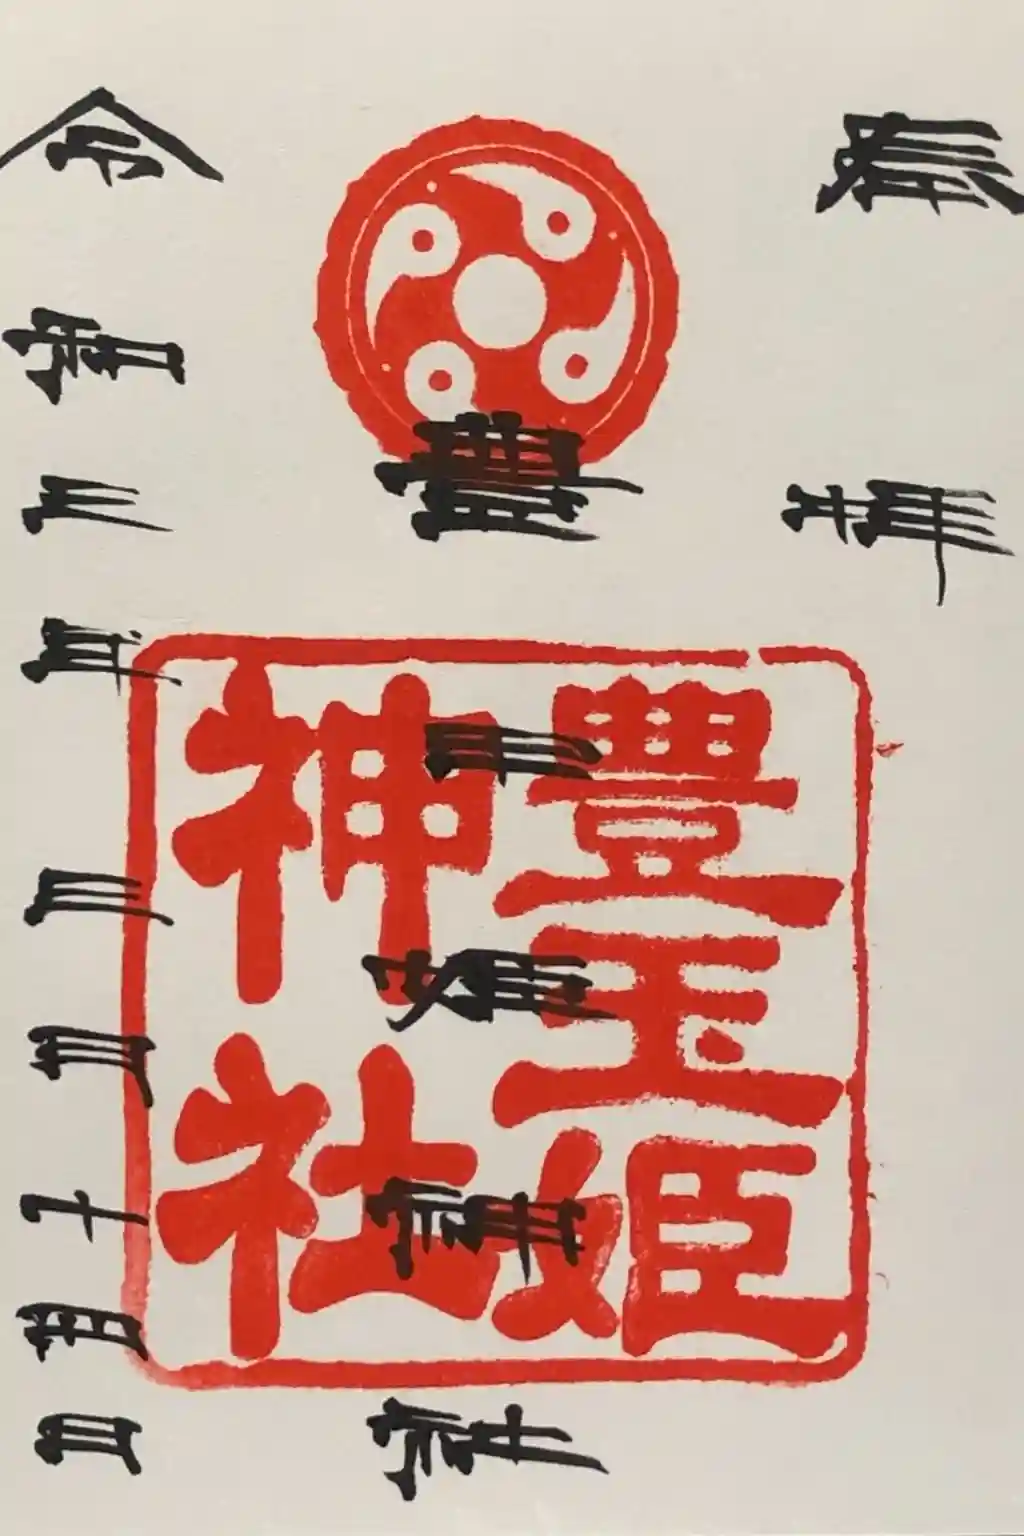 奉拝
豊玉姫神社
令和三年三月十四日
豊玉姫
神社